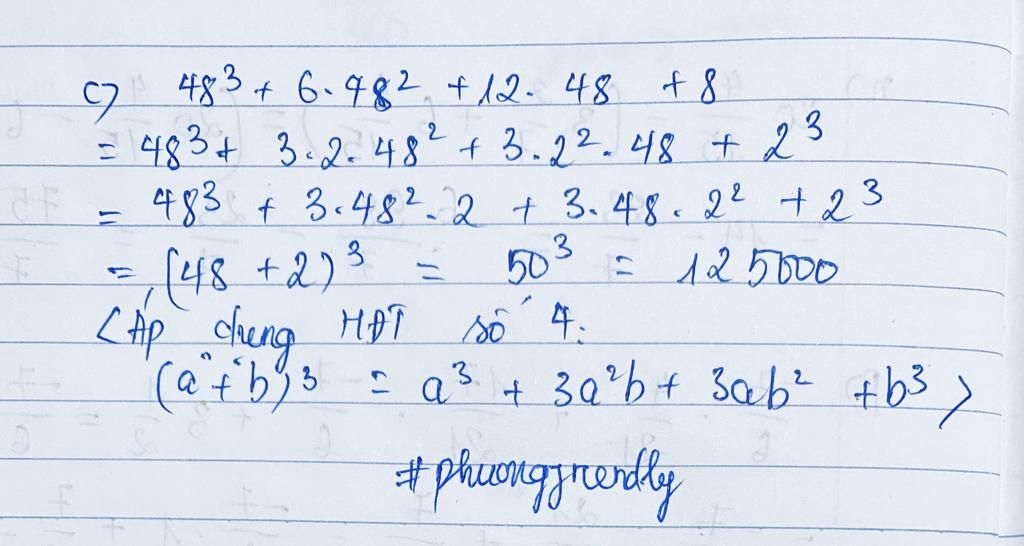 c) 48³ + 6.48² + 12. 48 + 8
= 48³ + 3.2.48² + 3.2².48 + 2³
= 48³ + 3.48².2 + 3.48.2² + 2³
= (48 + 2)³ = 50³ = 125000
<Áp dụng HĐT số 4:
(a + b)³ = a³ + 3a²b + 3ab² + b³>
#phuongfriendly